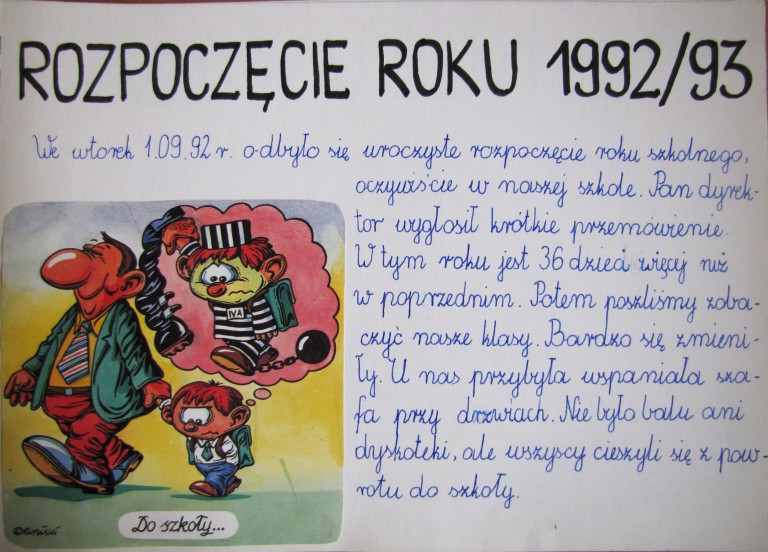 ROZPOCZĘCIE ROKU 1992/93
We wtorek 1.09.92 r. odbyło się uroczyste rozpoczęcie roku szkolnego,
oczywiście w naszej szkole. Pan dyrek-
tor wygłosił krótkie przemówienie.
W tym roku jest 36 dzieci więcej niż
w poprzednim. Potem poszliśmy zoba-
czyć nasze klasy. Bardzo się zmieni-
ły. U nas przybyła wspaniała sza-
fa przy drzwiach. Nie było balu ani
dyskoteki, ale wszyscy cieszyli się z pow-
rotu do szkoły.
IVA
Do szkoły...